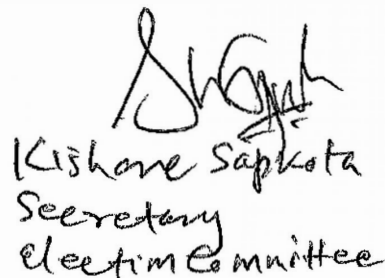 Kishore Sapkota
Secretary
Election Committee